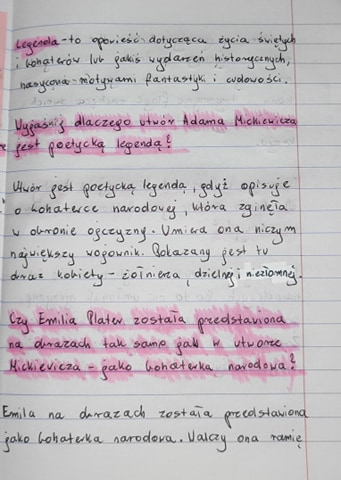 Legenda - to opowieść dotycząca życia świętych
i bohaterów lub jakiś wydarzeń historycznych,
nasycona motywami fantastyki i cudowości.
Wyjaśnij dlaczego utwór Adama Mickiewicza
jest poetycką legendą?
Utwór jest poetycką legendą, gdyż opisuje
o bohaterce narodowej, która zginęła
w obronie ojczyzny. Umiera ona niczym
największy wojownik. Pokazany jest tu
obraz kobiety - żołnierza, dzielnej i niezłomnej.
Czy Emilia Plater została przedstawiona
na obrazach tak samo jak w utworze
Mickiewicza - jako bohaterka narodowa?
Emila na obrazach została przedstawiona
jako bohaterka narodowa. Walczy ona ramię